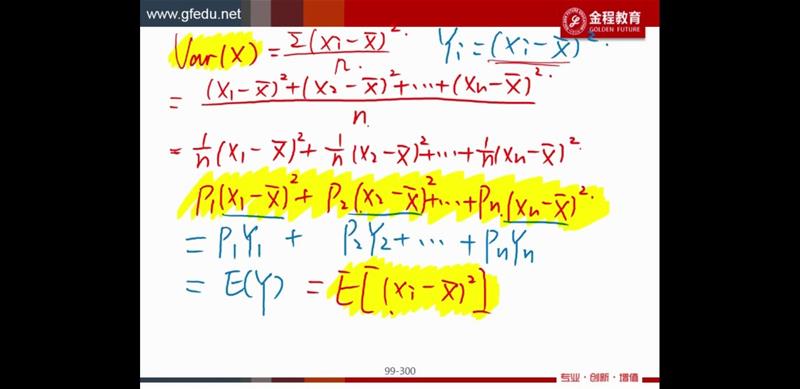 www.gfedu.net
金程教育
GOLDEN FUTURE
Var(X) = Σ(xi-x̄)²/n. Yi = (xi-x̄)².
= (x1-x̄)²+(x2-x̄)²+…+(xn-x̄)²/n.
= 1/n(x1-x̄)²+1/n(x2-x̄)²+…+1/n(xn-x̄)².
P1(x1-x̄)²+P2(x2-x̄)²+…+Pn(xn-x̄)².
= P1Y1 + P2Y2+…+PnYn
= E(Y) = E[(xi-x̄)²]
99-300
专业·创新·增值